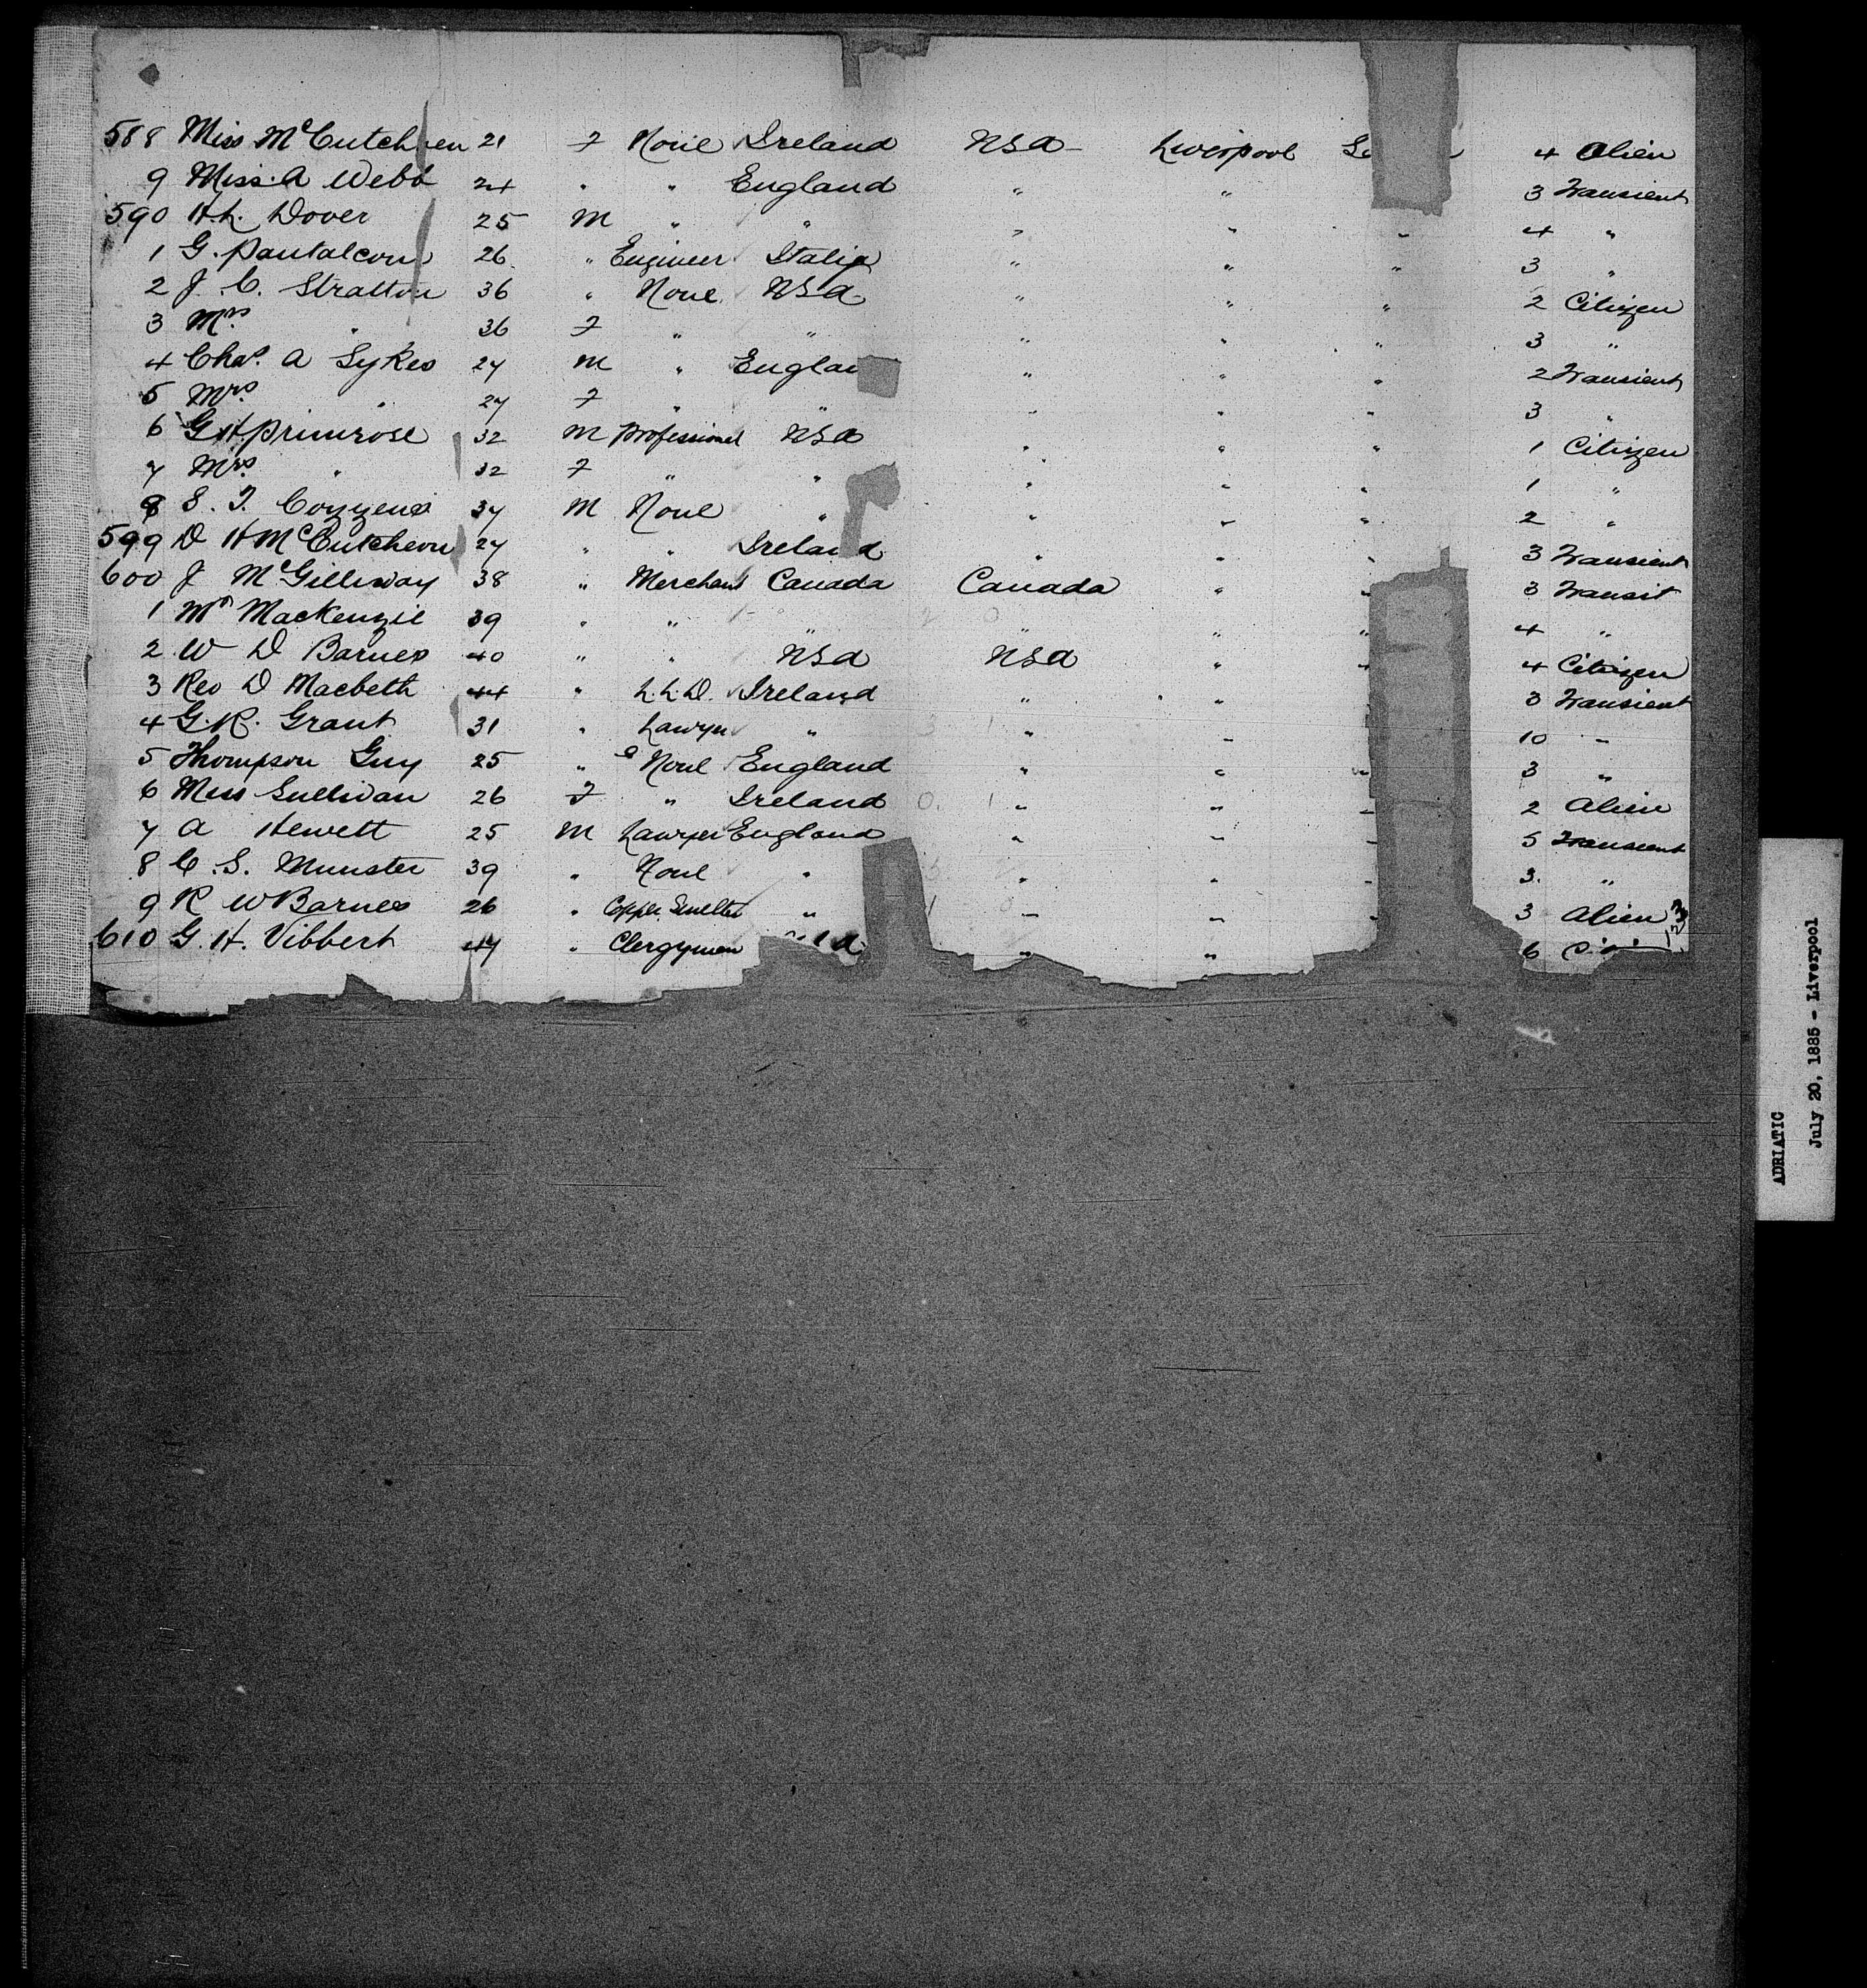 588 Miss McCutcheen 21 F None Ireland USA Liverpool 4 Alien
9 Miss A Webb 24 " " England " " 3 Transient
590 H.L. Dover 25 M " " " " " 4 "
1 G. Pantaleoni 26 " Engineer Italia " " " 3 "
2 J. C. Stratton 36 " None USA " " " 2 Citizen
3 Mrs " 36 F " " " " " 3 "
4 Chas. A Sykes 27 M " Englan " " " 2 Transient
5 Mrs " 27 F " " " " " 3 "
6 G H Primrose 32 M Professional USA " " " 1 Citizen
7 Mrs " 32 F " " " " " 1 "
8 S. T. Cozzens 37 M None " " " " 2 "
599 D H McCutcheon 27 " " Ireland " " " 3 Transient
600 J McGilliway 38 " Merchant Canada Canada " " 3 Transit
1 Mr Mackenzie 39 " " " " " " 4 "
2 W D Barnes 40 " " USA USA " " 4 Citizen
3 Rev D Macbeth 44 " L.L.D. Ireland " " " 3 Transient
4 G. R. Grant 31 " Lawyer " " " " 10 "
5 Thompson Guy 25 " None England " " " 3 "
6 Miss Sullivan 26 F " Ireland " " " 2 Alien
7 A Hewett 25 M Lawyer England " " " 5 Transient
8 C. S. Munster 39 " None " " " " 3. "
9 R W Barnes 26 " Copper Smelter " " " " 3 Alien
610 G. H. Vibbert 47 " Clergyman " " 6
ADRIATIC
July 20, 1885 - Liverpool